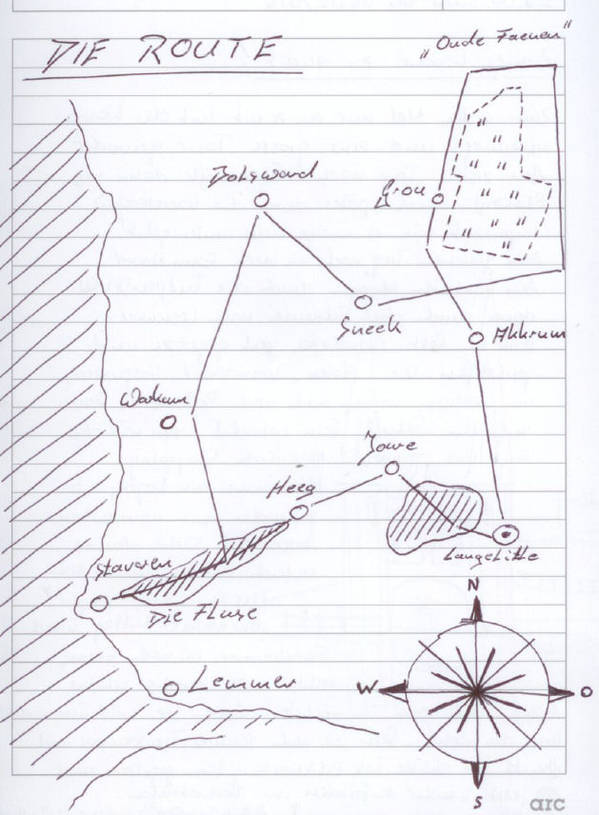 DIE ROUTE
"Oude Faenen"
Bolsward
Grou
Sneek
Akkrum
Workum
Jowe
Heeg
Langelille
Stavoren
Die Fluse
Lemmer
N
W
O
S
arc